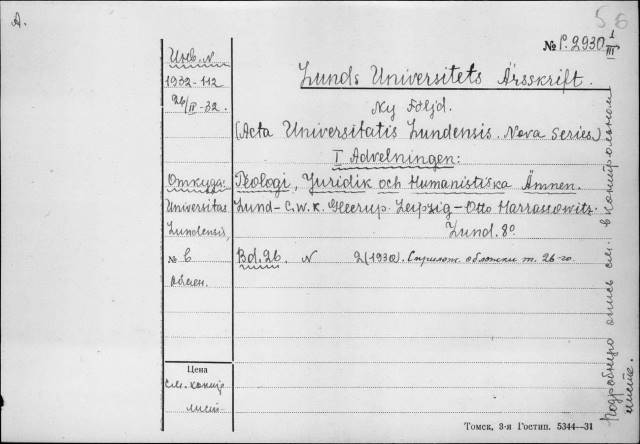 А.
56
№ P.2930 1/III
Инв. N
1932-112
26/II-32.
Lunds Universitets Årsskrift.
Ny Följd.
(Acta Universitatis Lundensis. Nova Series)
I Advelningen:
Откуда:
Universitas
Lundensis,
№ 6
Обмен.
Teologi, Juridik och Humanistiska Ämnen.
Lund-C.W.K. Gleerup. Leipzig-Otto Harrassowitz.
Lund. 8°
Bd. 26. N 2(1930). С прилож. обложки т. 26-го.
Цена
см. контр
лист
Подробную опись см. в контрольном
листе.
Томск, 3-я Гостип. 5344—31